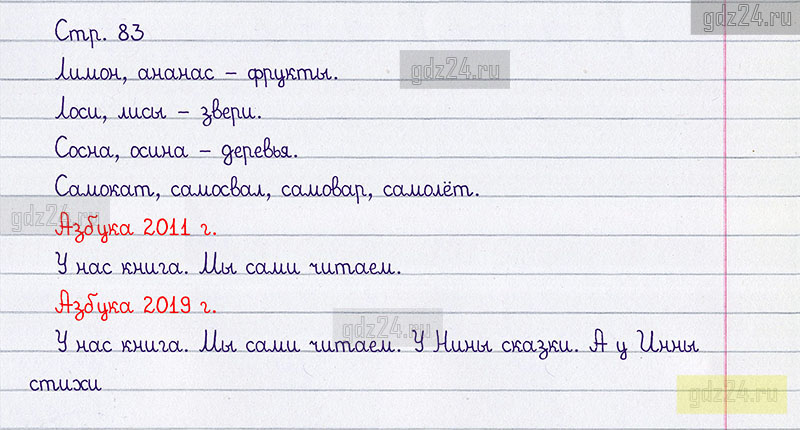 gdz24.ru
Стр. 83
Лимон, ананас – фрукты.
gdz24.ru
Лоси, лисы – звери.
Сосна, осина – деревья.
Самокат, самосвал, самовар, самолёт.
gdz24.ru
Азбука 2011 г.
У нас книга. Мы сами читаем.
Азбука 2019 г.
gdz24.ru
У нас книга. Мы сами читаем. У Нины сказки. А у Инны
стихи
gdz24.ru